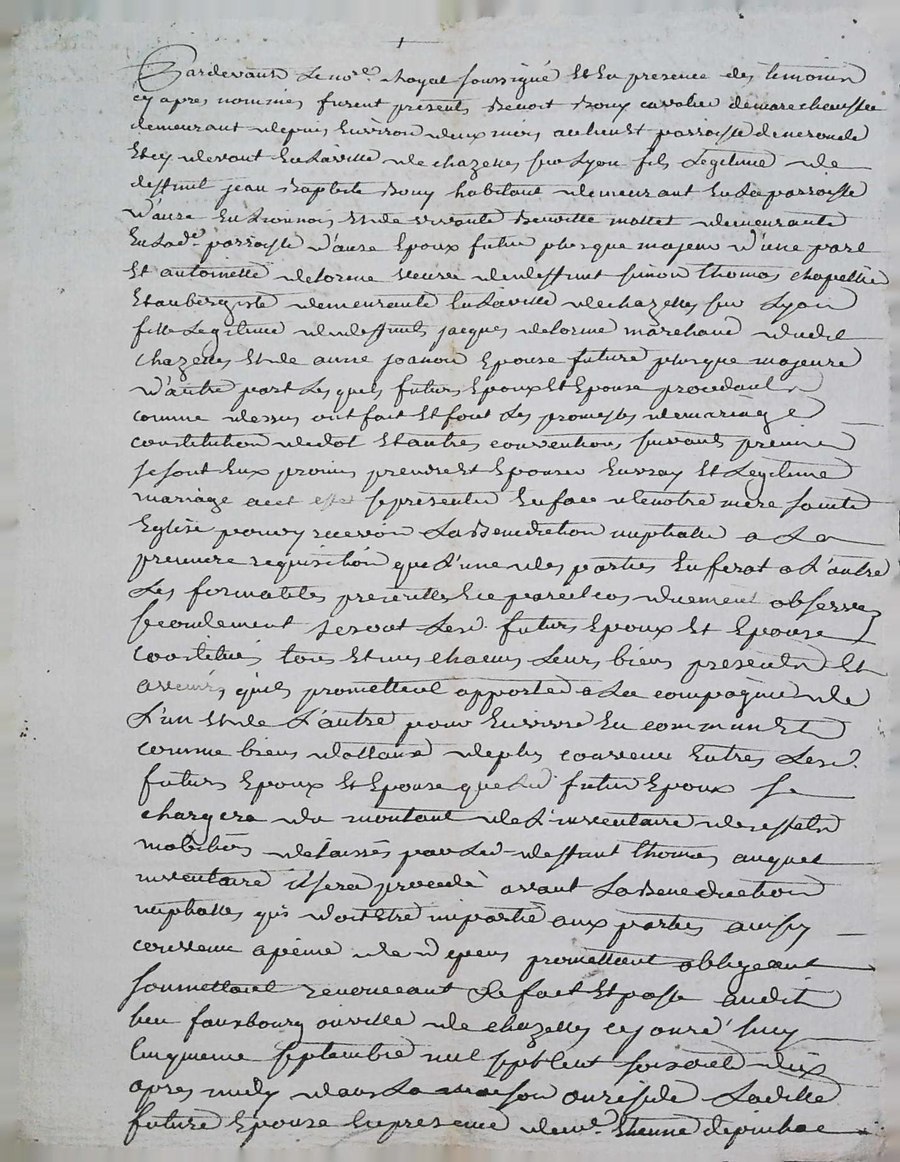 Pardevant Le no.re Royal soussigné Et En presence des temoins
cy apres nommés furent presents Benoit Bouy cavalier demarechaussée
demeurant depuis Environ deux mois au lieu Et parroisse denеronde
Et cy devant En La ville de chazelles sur Lyon fils Legitime de
deffunt jean Baptiste Bouy habitant demeurant En La parroisse
D'anse En Lionnois Et de vivante Benoitte mottet demeurante
En Lad.e parroisse d'anse Epoux futur plusque majeur d'une part
Et antoinette delorme veuve de deffunt simon thomas chapellier
Et aubergiste demeurante En La ville de chazelles sur Lyon
fille Legitime de deffunt jacques delorme marchand dudit
chazelles Et de anne joanon Epouse future plusque majeure
D'autre part Lesquels futurs Epoux Et Epouse procedant
comme dessus ont fait Et font Les promesses de mariage
constitution de dot Et autres conventions suivant premier
se sont Eux promis prendre Et Epouser En vray Et Legitime
mariage a cet effet se presenter En face de notre mere sainte
Eglise pour y recevoir La Benediction nuptialle a La
premiere requisition que L'une des parties En ferat a L'autre
Les formalités prescrittes En ce pareil cas duement observées
secondement se sont Lesd. futurs Epoux Et Epouse
constitués tous Et uns chacuns Leurs biens presents Et
avenirs qu'ils promettent apporter a La compagnie de
L'un Et de L'autre pour En vivre En commun Et
comme biens dottaux de plus convenu Entres Lesd.
futurs Epoux Et Epouse que Led. futur Epoux se
chargera du montant de L'inventaire des effets
mobiliers delaissés par Led. deffunt thomas auquel
inventaire il sera procedé avant La Benediction
nuptialle qui doit Etre impartie aux parties ainsy
convenu a peine de depens promettant obligeant
soumettant renonceant De fait Et passé audit
lieu fauxbourg ou ville de chazelles ce jourd'huy
cinquieme septembre mil sept cent soixante dix
apres midy dans La maison ou reside Laditte
future Epouse En presence de m.e Etienne depinhac